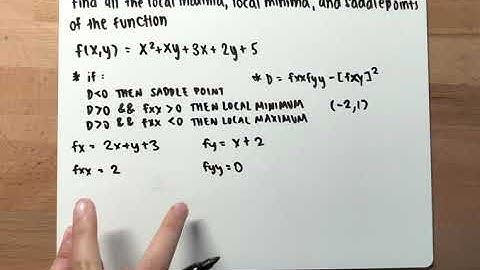 Find all the local maxima, local minima, and saddle points
of the function
f(x,y) = x²+xy+3x+2y+5
* if: * D = fxxfyy-[fxy]²
D<0 THEN SADDLE POINT
D>0 && fxx>0 THEN LOCAL MINIMUM (-2,1)
D>0 && fxx<0 THEN LOCAL MAXIMUM
fx = 2x+y+3 fy = x+2
fxx = 2 fyy=0